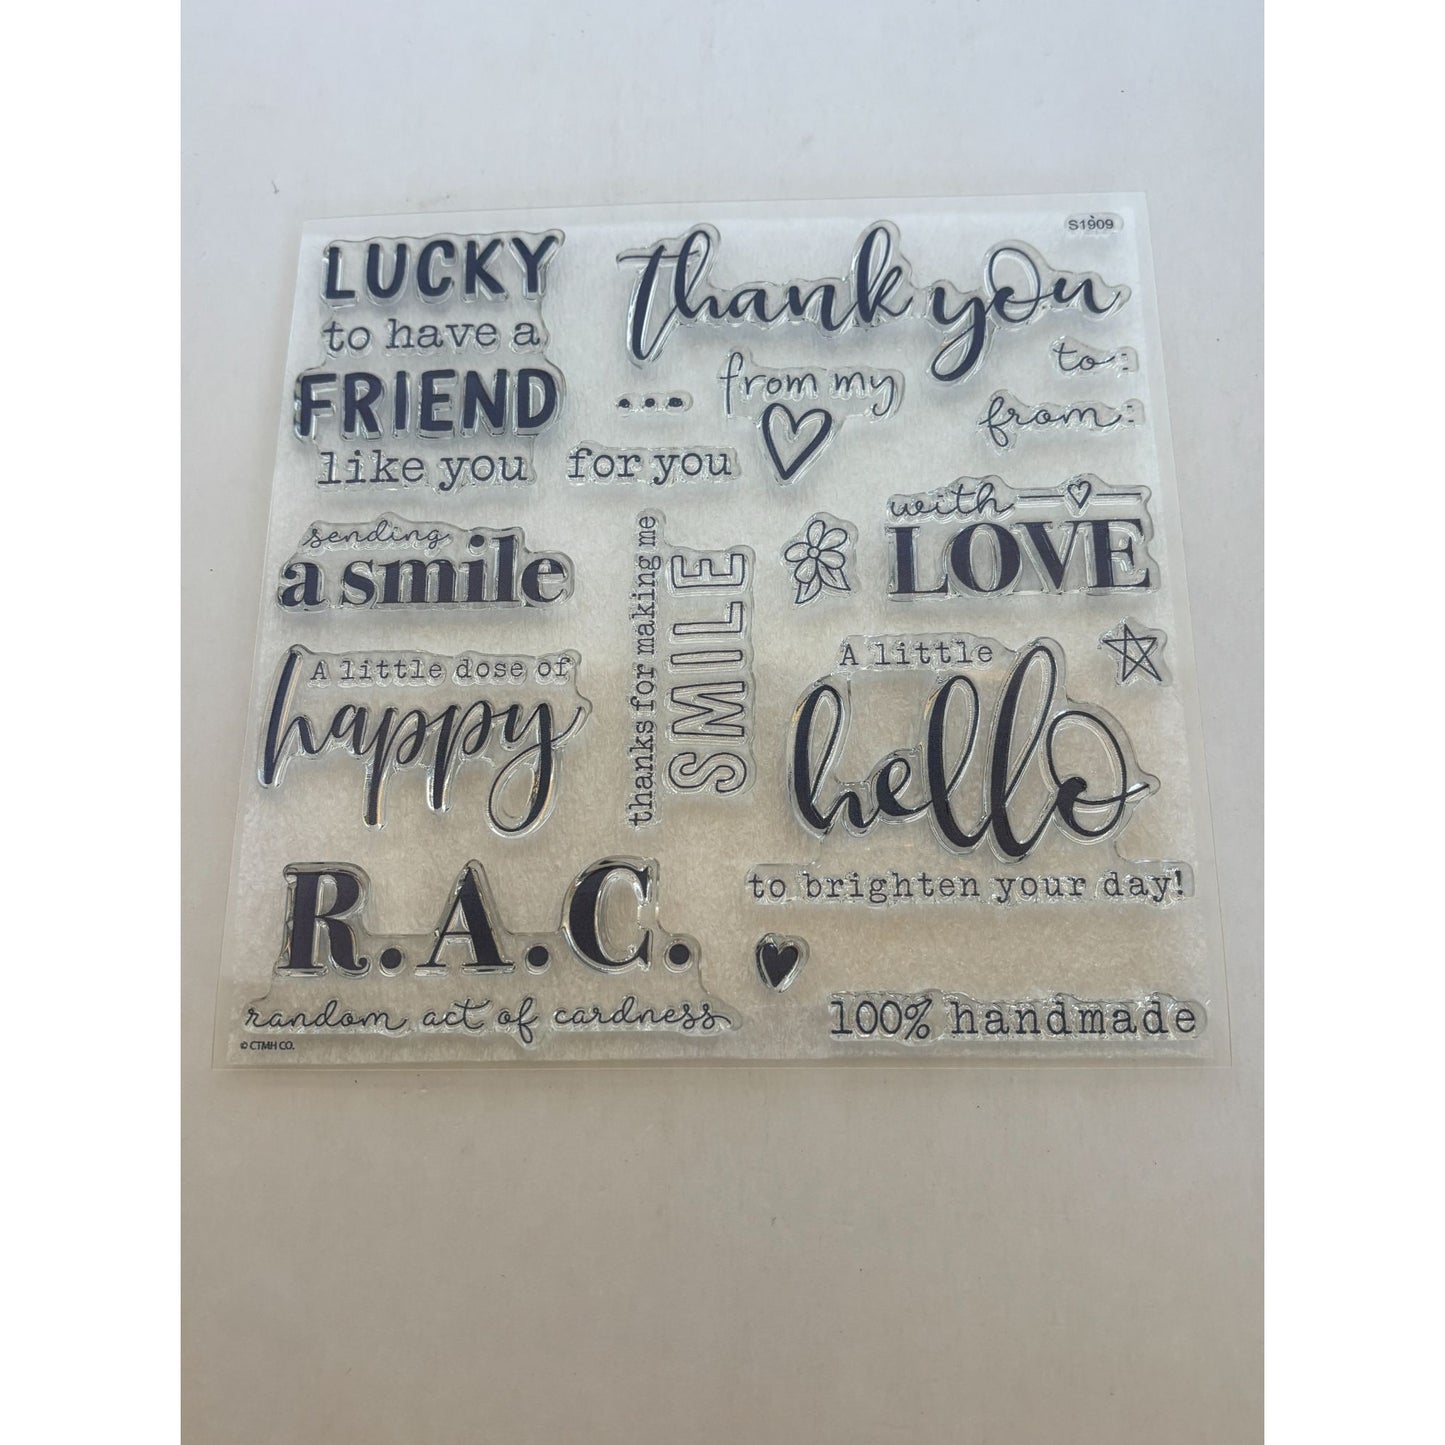 S1909
LUCKY
to have a
FRIEND
like you
thank you
...
from my
to:
from:
for you
with
LOVE
sending
a smile
thanks for making me
SMILE
A little dose of
happy
A little
hello
to brighten your day!
R.A.C.
random act of cardness
100% handmade
© CTMH CO.